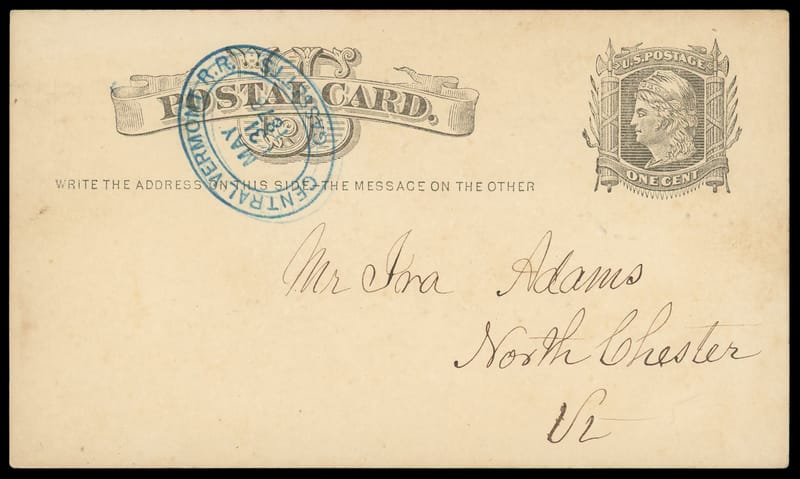 U.S. POSTAGE
POSTAL CARD.
CENTRAL VERMONT R.R.
MAY
21
WRITE THE ADDRESS ON THIS SIDE—THE MESSAGE ON THE OTHER
ONE CENT
Mr Ira Adams
North Chester
Vt